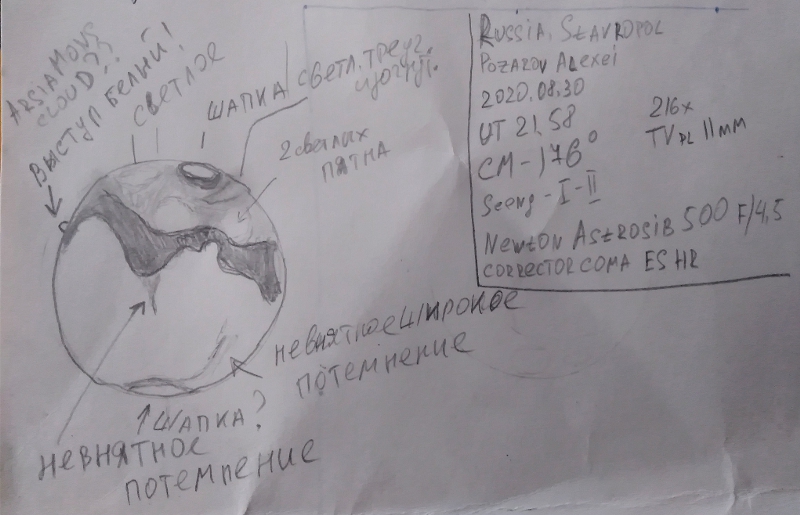 ARSIA MONS
CLOUD??
ВЫСТУП БЕЛЫЙ!
СВЕТЛОЕ
ШАПКА
СВЕТЛ. ТРЕУГ.
2 светлых
ПЯТНА
НЕВНЯТНОЕ ШИРОКОЕ
ПОТЕМНЕНИЕ
ШАПКА?
НЕВНЯТНОЕ
ПОТЕМНЕНИЕ
RUSSIA, STAVROPOL
POZAROV ALEXEI
2020.08.30
UT 21.58
216x
CM-176°
TV PL 11MM
Seeng - I-II
NEWTON ASTROSIB 500 F/4,5
CORRECTOR COMA ES HR